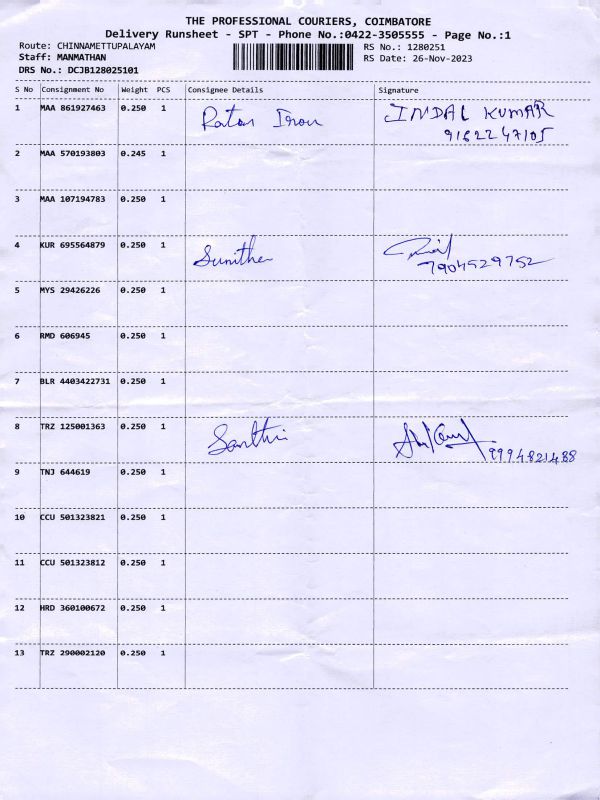 THE PROFESSIONAL COURIERS, COIMBATORE
Delivery Runsheet - SPT - Phone No.:0422-3505555 - Page No.:1
Route: CHINNAMETTUPALAYAM RS No.: 1280251
Staff: MANMATHAN RS Date: 26-Nov-2023
DRS No.: DCJB128025101
S No Consignment No Weight PCS Consignee Details Signature
1 MAA 861927463 0.250 1 Ratan Iron INDAL KUMAR
9162247105
2 MAA 570193803 0.245 1
3 MAA 107194783 0.250 1
4 KUR 695564879 0.250 1 Sunitha
7904529752
5 MYS 29426226 0.250 1
6 RMD 606945 0.250 1
7 BLR 4403422731 0.250 1
8 TRZ 125001363 0.250 1 Santhi
9994821488
9 TNJ 644619 0.250 1
10 CCU 501323821 0.250 1
11 CCU 501323812 0.250 1
12 HRD 360100672 0.250 1
13 TRZ 290002120 0.250 1